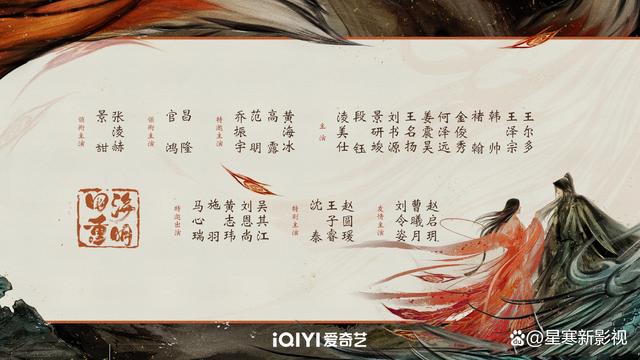 领衔主演
景甜
张凌赫
领衔主演
官鸿
昌隆
特邀主演
乔振宇
范明
高露
黄海冰
主演
凌美仕
段钰
景研竣
刘书源
王名扬
姜震昊
何泽远
金俊秀
褚翰
韩帅
王泽宗
王尔多
四海重明
特邀出演
马心瑞
施羽
黄志玮
刘恩尚
吴其江
特别主演
沈泰
王子睿
赵圆瑗
友情主演
刘令姿
曹曦月
赵启玥
iQIYI 爱奇艺
@星寒新影视